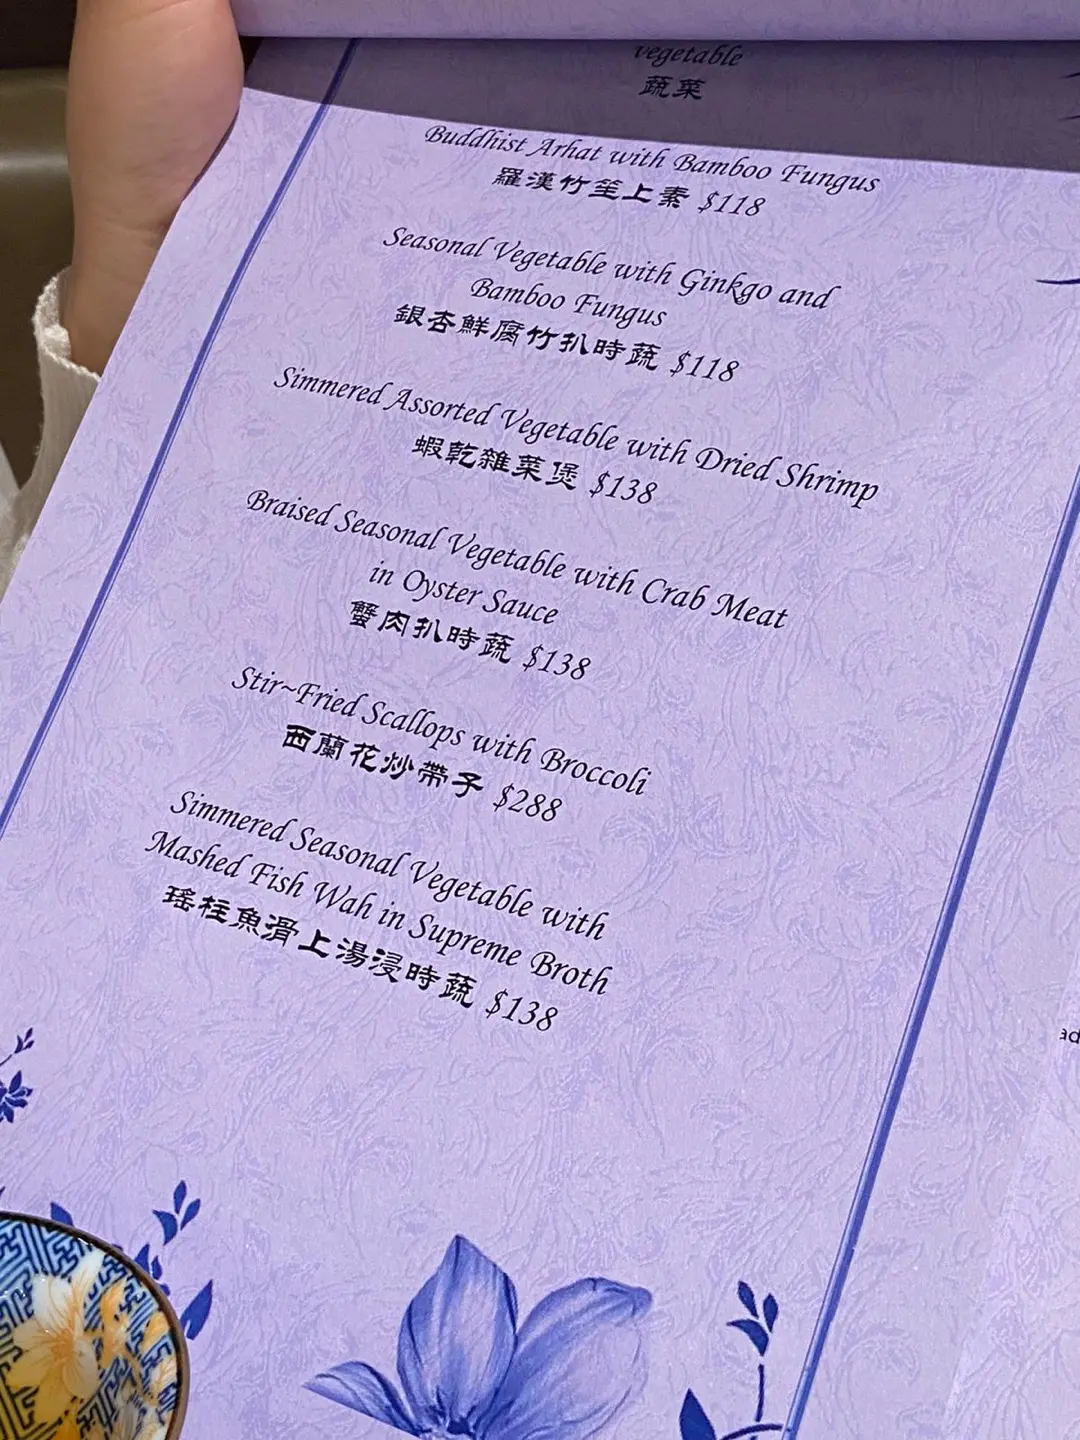 vegetable
蔬菜
Buddhist Arhat with Bamboo Fungus
羅漢竹笙上素 $118
Seasonal Vegetable with Ginkgo and
Bamboo Fungus
銀杏鮮腐竹扒時蔬 $118
Simmered Assorted Vegetable with Dried Shrimp
蝦乾雜菜煲 $138
Braised Seasonal Vegetable with Crab Meat
in Oyster Sauce
蟹肉扒時蔬 $138
Stir~Fried Scallops with Broccoli
西蘭花炒帶子 $288
Simmered Seasonal Vegetable with
Mashed Fish Wah in Supreme Broth
瑤柱魚滑上湯浸時蔬 $138
ad